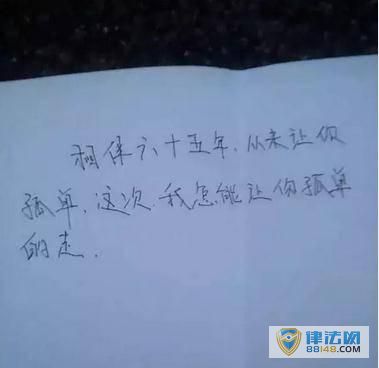 相保六十五年,从未让你
孤单,这次,我怎能让你孤单
的走.
律法网
88148.com